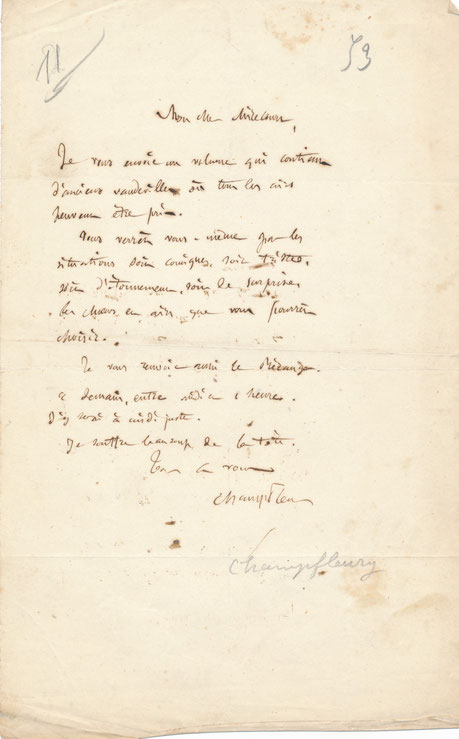 11
53
Mon cher Mirecourt,
Je vous envoie un volume qui contient
d'anciens vaudevilles où tous les airs
peuvent être pris.
Vous verrez vous-même par les
situations soit comiques, soit tristes,
soit d'étonnement, soit de surprise,
les chœurs en airs que vous pourrez
choisir.
Je vous renvoie aussi le
à demain, entre midi et 1 heure.
J'y serai à midi juste.
Je souffre beaucoup de la tête.
Tout à vous
Champfleury
Champfleury